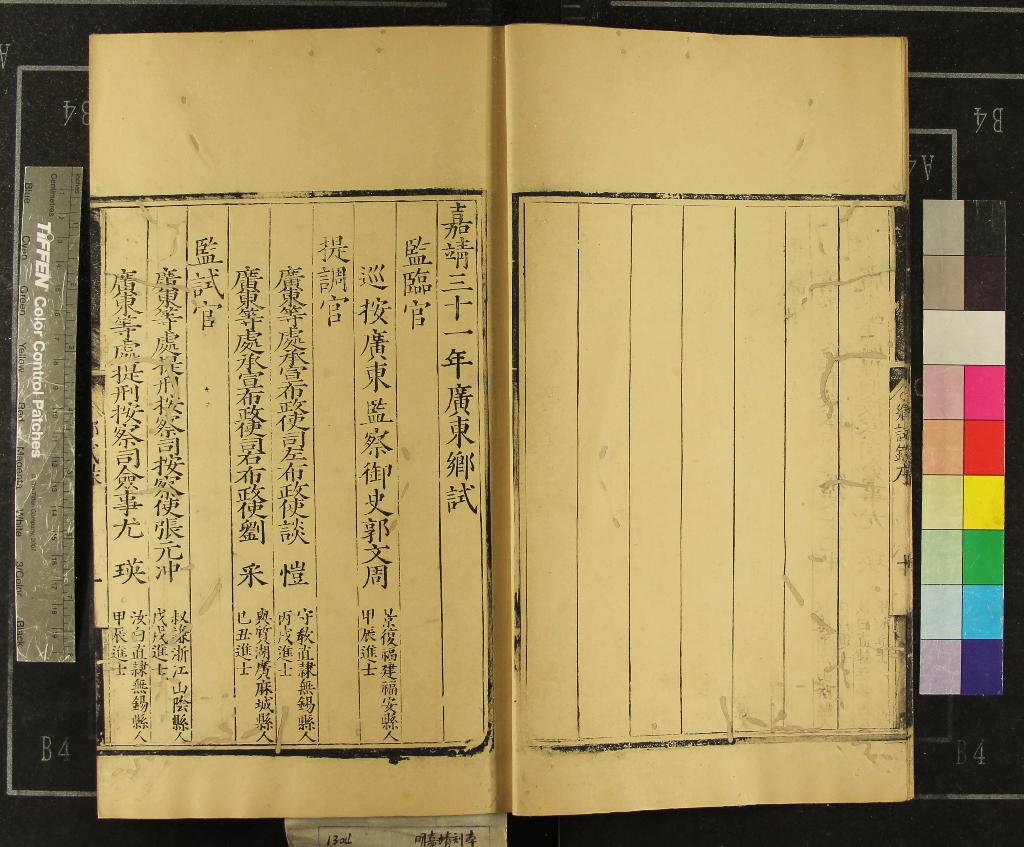 嘉靖三十一年廣東鄉試
監臨官
巡按廣東監察御史郭文周
景復福建福安縣人
甲辰進士
提調官
廣東等處承宣布政使司左布政使談　愷
守教直隸無錫縣人
丙戌進士
廣東等處承宣布政使司右布政使劉　采
與質湖廣麻城縣人
己丑進士
監試官
廣東等處提刑按察司按察使張元冲
叔謙浙江山陰縣人
戊戌進士
廣東等處提刑按察司僉事尤　瑛
汝白直隸無錫縣人
甲辰進士
鄉試錄序
B4
B4
B4
B4
A4
TIFFEN Color Control Patches
Centimetres
Blue
Green
Yellow
Magenta
White
3/Color
Black